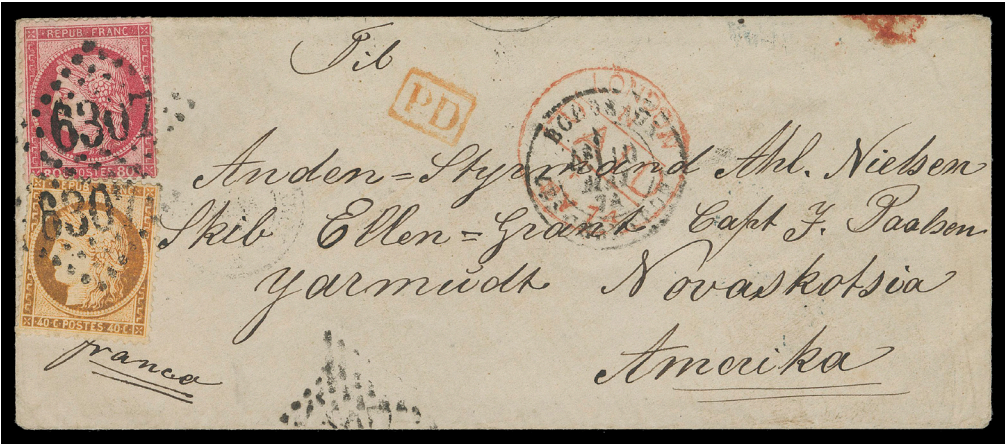 REPUB FRANC
80 POSTES 80
6307
REPUB FRANC
6307
40 C POSTES 40 C
Til
PD
LONDON
BORDEAUX
Anden=Styrmand Ahl. Nielsen
Skib Ellen=Grant Capt J. Paalsen
Yarmudt Novaskotsia
Amerika
franca